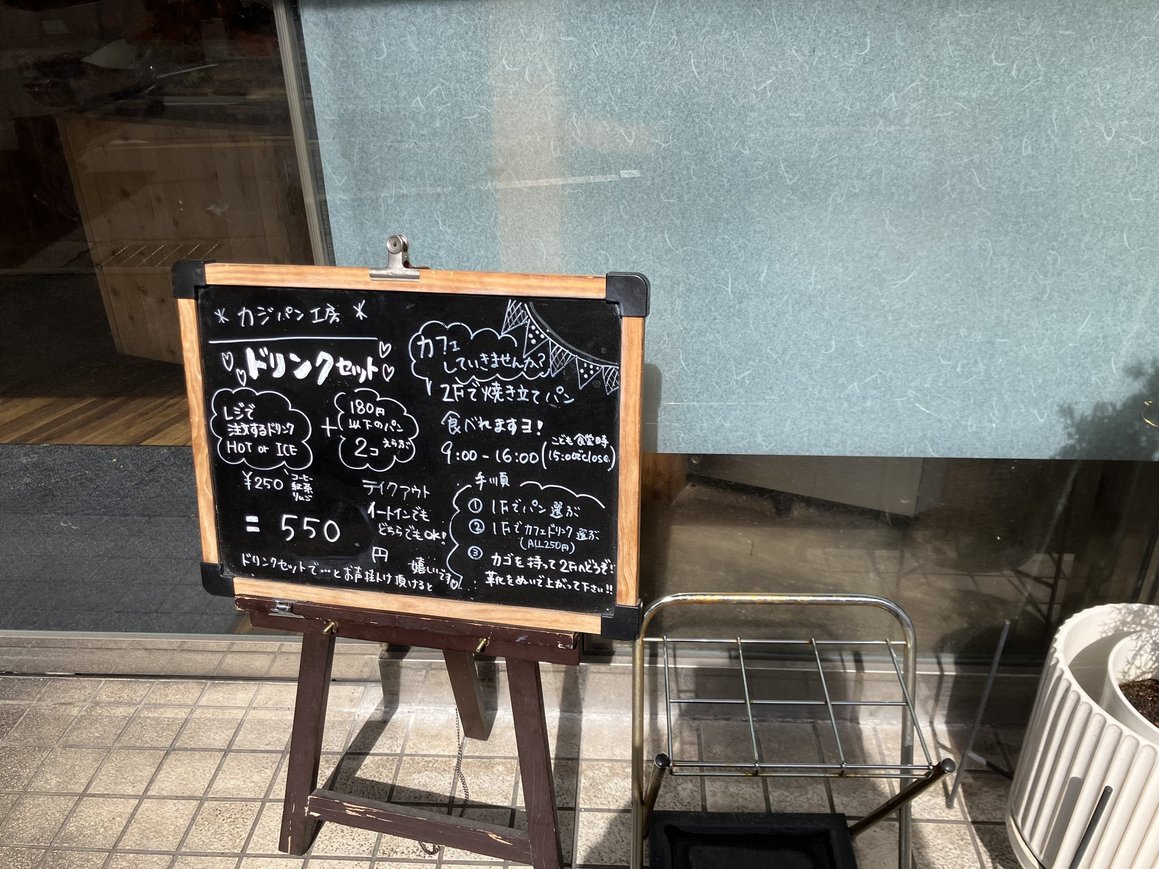 カジパン工房
ドリンクセット
レジで
注文するドリンク
HOT or ICE
¥250
コーヒー
紅茶
りんご
+
180円
以下のパン
2コえらぶ
= 550
円
テイクアウト
イートインでも
どちらでもOK!
ドリンクセットで…とお声掛け頂けると
嬉しいです
カフェ
していきませんか?
2Fで焼き立てパン
食べれますヨ!
9:00-16:00(こども食堂時
15:00でclose)
手順
① 1Fでパン選ぶ
② 1Fでカフェドリンク選ぶ
(ALL250円)
③ カゴを持って2Fへどうぞ!
靴をぬいで上がって下さい!!